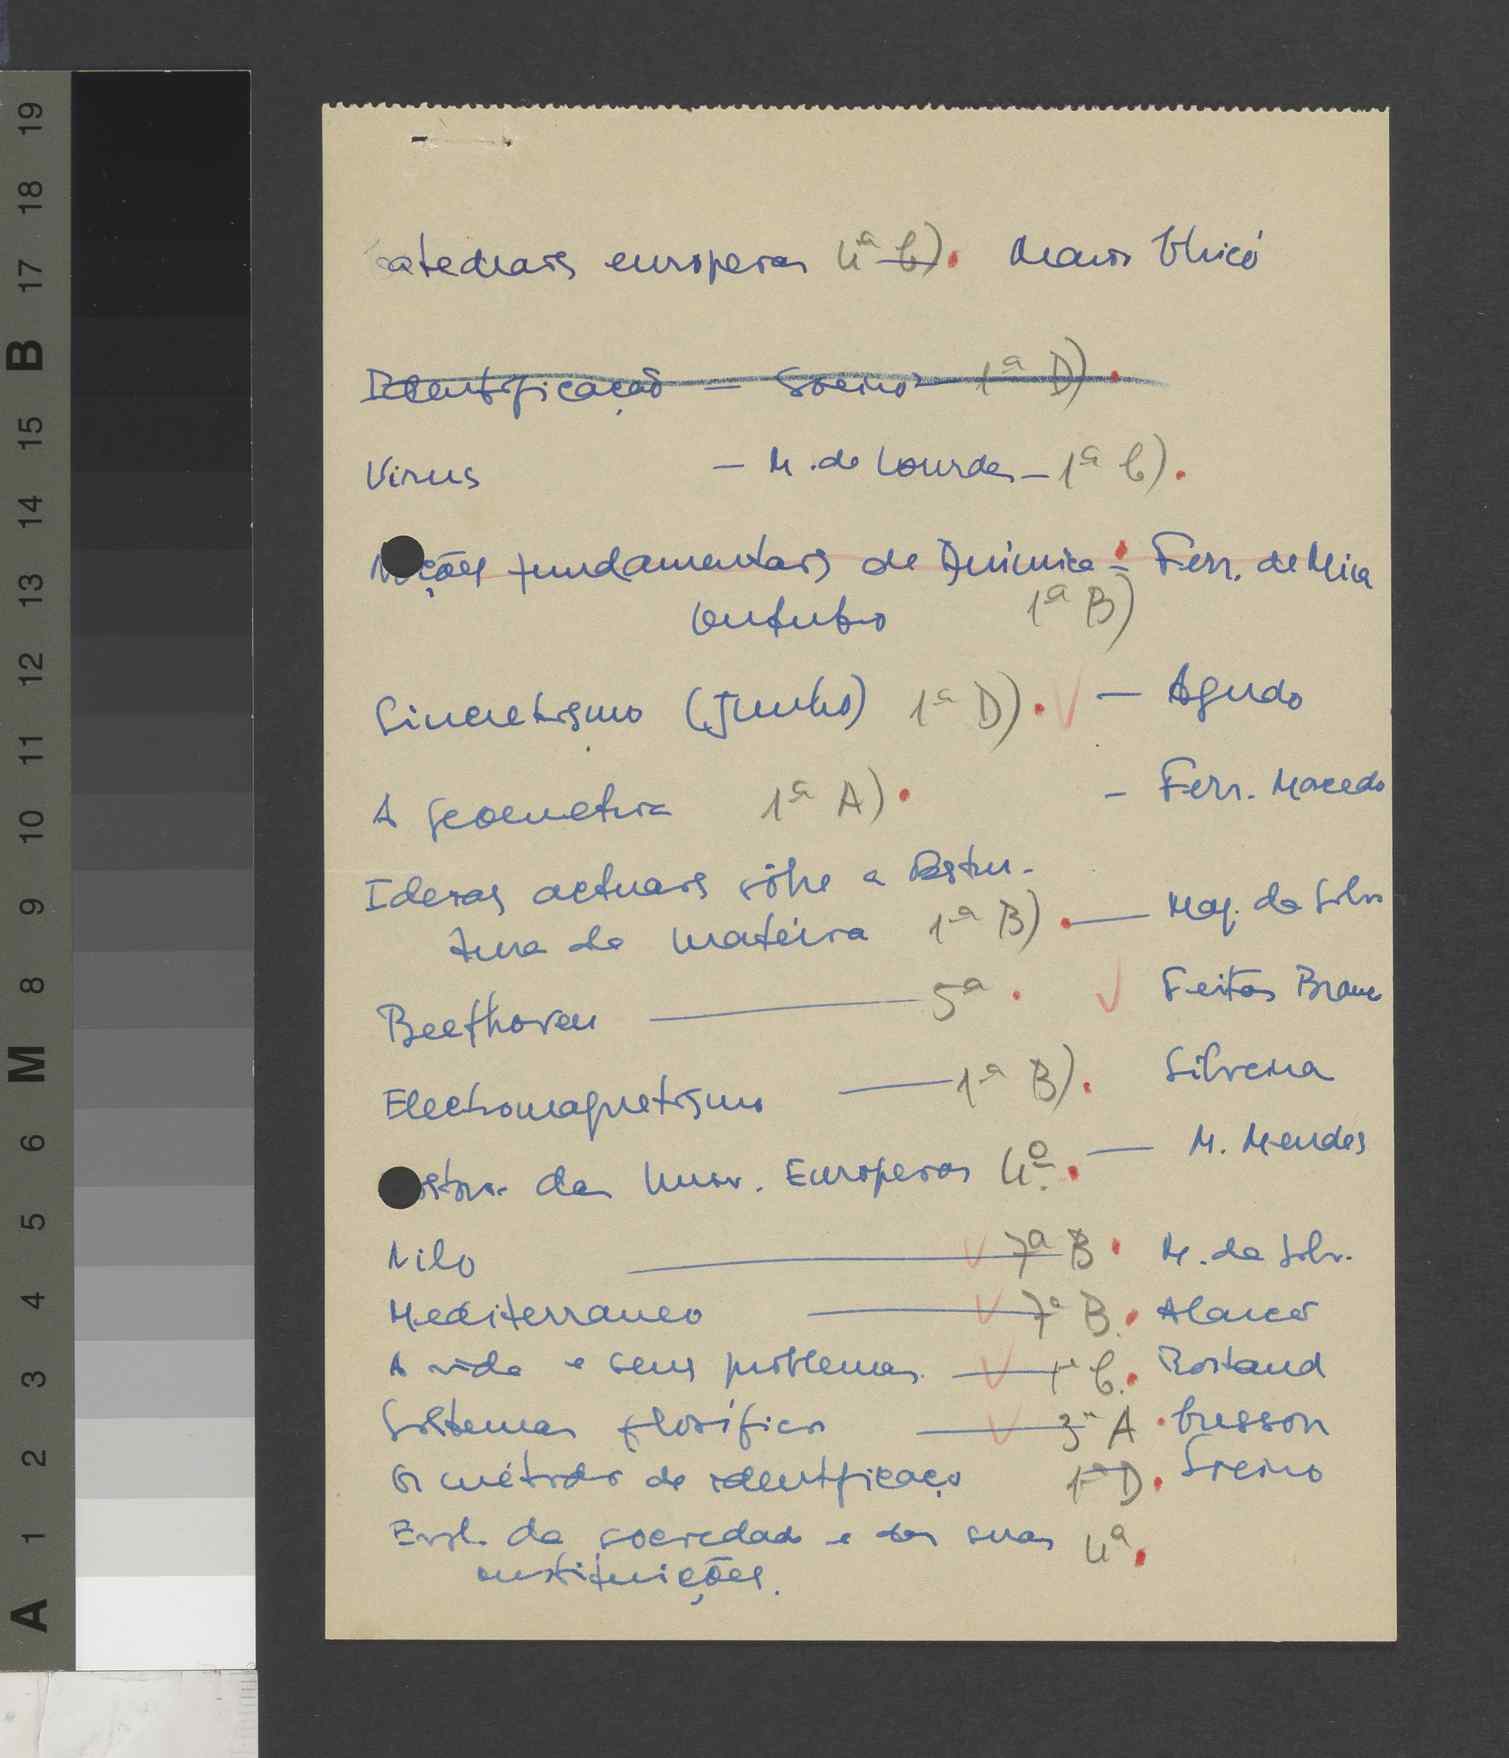 catedrais europeias 4ª C). Mario Chicó
Identificação — Soeiro — 1ª D).
Virus — M. de Lourdes — 1ª C).
Noções fundamentais de Química — Ferr. de Mira
Outubro 1ª B)
Sincretismo (Junho) 1ª D). — Agudo
A geometria 1ª A). — Ferr. Macedo
Ideias actuais sôbre a Estru-
tura da matéria 1ª B). — Mag. da Silva
Beethoven — 5ª. Freitas Branco
Electromagnetismo — 1ª B). Silveira
das Univ. Europeias 4ª. — M. Mendes
Nilo — 7ª B. M. da Silv.
Mediterraneo — 7ª B. Alarcão
A vida e seus problemas — 1ª C. Rostand
Sistemas filosóficos — 3ª A. Cresson
Os métodos de identificação 1ª D. Soeiro
Evol. da sociedade e das suas 4ª.
instituições.